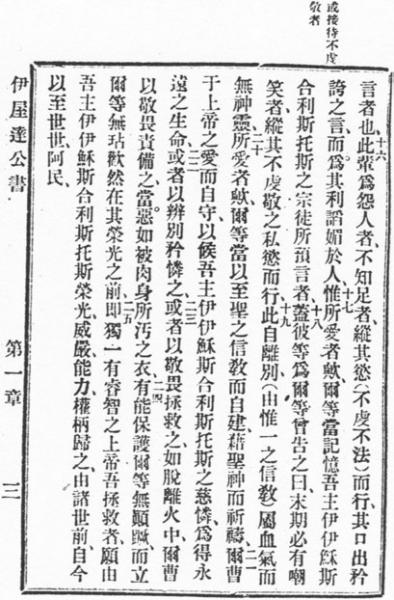 或接待不虔
敬者
十六言者也、此輩爲怨人者、不知足者、縱其慾(不虔不法)而行、其口出矜
誇之言、而爲其利諂媚於人、十七惟所愛者歟、爾等當記憶吾主伊伊穌斯
合利斯托斯之宗徒所預言者、十八蓋彼等爲爾等曾告之曰、末期必有嘲
笑者、縱其不虔敬之私慾而行、十九此自離別(由惟一之信教)屬血氣而
無神靈、二十所愛者歟、爾等當以至聖之信教而自建、藉聖神而祈禱、二一爾曹
于上帝之愛而自守、以候吾主伊伊穌斯合利斯托斯之慈憐、爲得永
遠之生命、二二或者以辨別矜憐之、二三或者以敬畏拯救之、如脫離火中、爾曹
以敬畏責備之、當惡如被肉身所汚之衣、二四有能保護爾等無顚蹶而立
爾等無玷歡然在其榮光之前、二五即獨一有睿智之上帝吾拯救者、願由
吾主伊伊穌斯合利斯托斯榮光、威嚴、能力、權柄歸之、由諸世前、自今
以至世世、阿民、
伊屋達公書 第一章 三